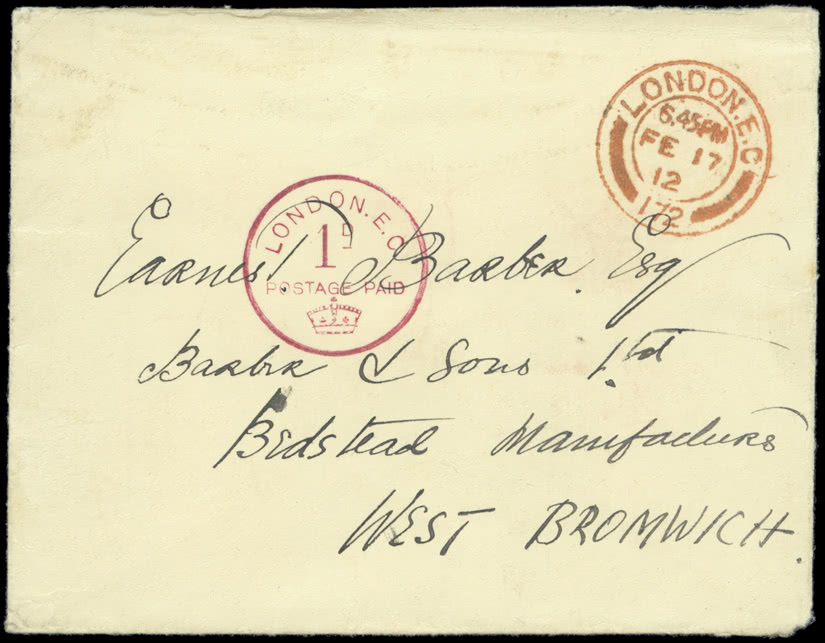 LONDON.E.C
6.45PM
FE 17
12
172
LONDON.E.C
1D
POSTAGE PAID
Earnest Barber Esq
Barber & Sons Ltd
Bedstead Manufacturers
WEST BROMWICH.